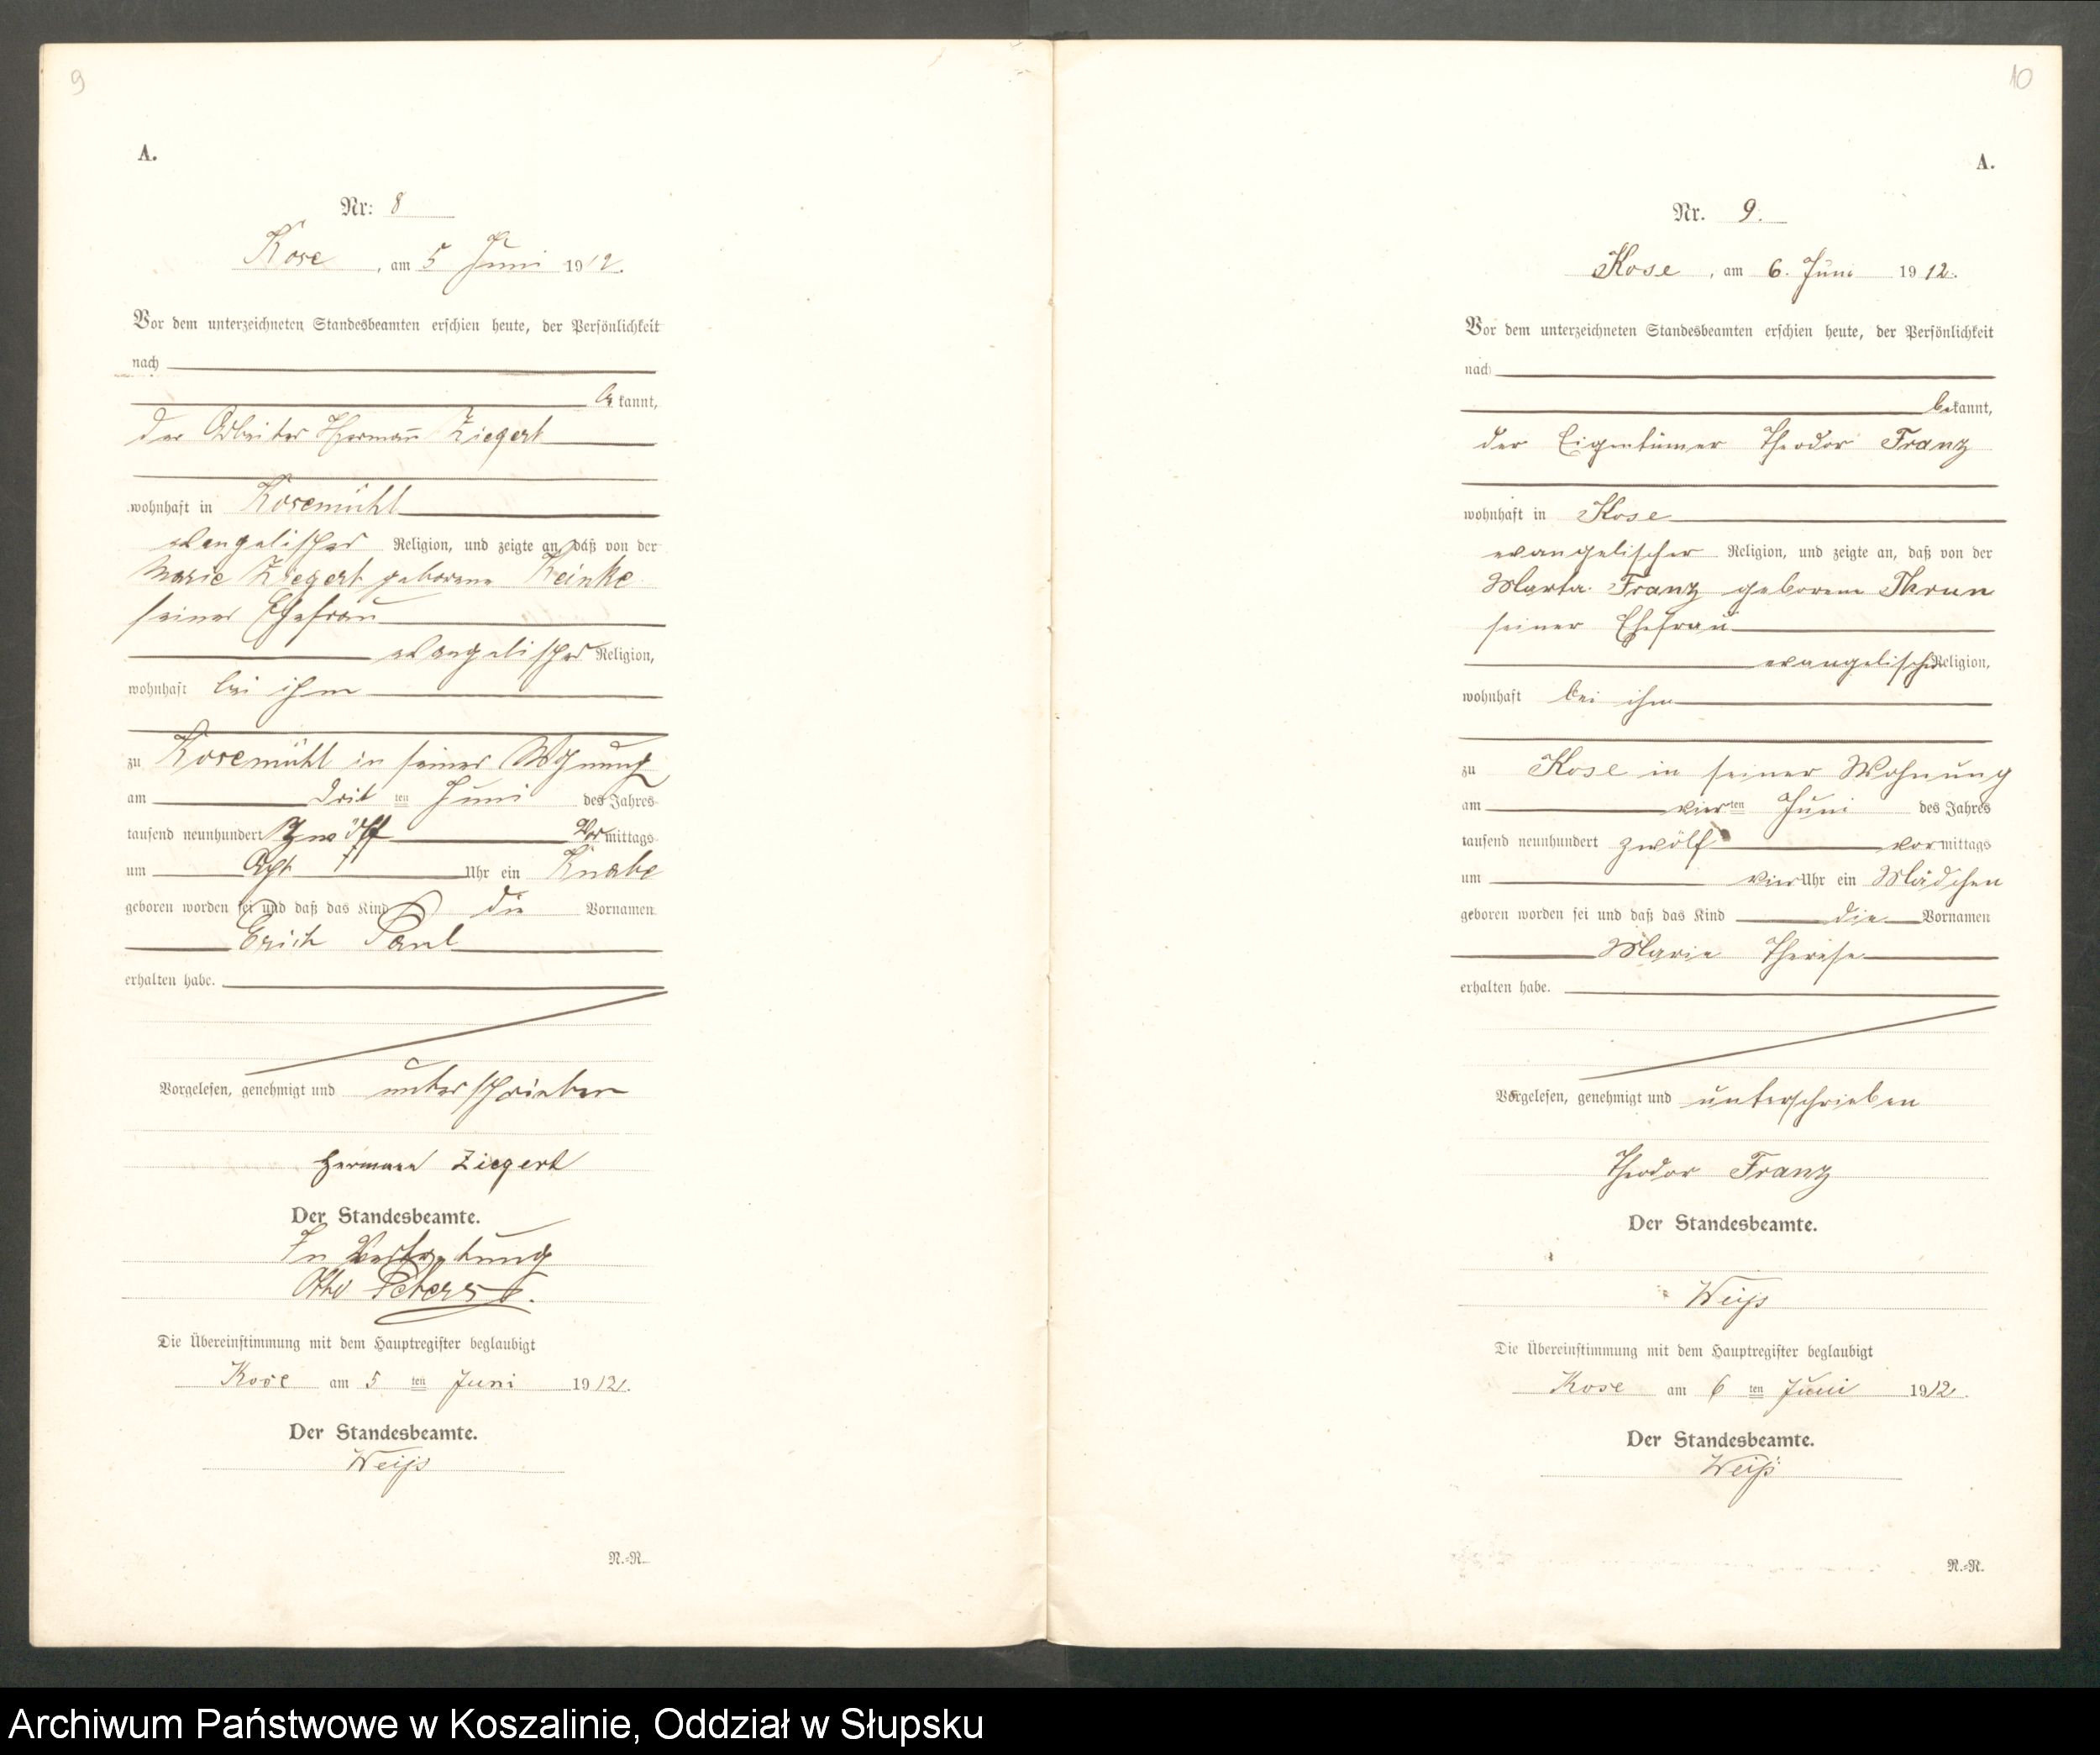 9
A.
Nr: 8
Kose, am 5 Juni 1912.
Vor dem unterzeichneten Standesbeamten erschien heute, der Persönlichkeit
nach
be kannt,
der Arbeiter Hermann Ziegert
wohnhaft in Kosemühl
evangelischer Religion, und zeigte an, daß von der
Marie Ziegert geborene Reinke
seiner Ehefrau
evangelischer Religion,
wohnhaft bei ihm
zu Kosemühl in seiner Wohnung
am drit ten Juni des Jahres
tausend neunhundert zwölf Vormittags
um Acht Uhr ein Knabe
geboren worden sei und daß das Kind die Vornamen
Erich Paul
erhalten habe.
Vorgelesen, genehmigt und unterschrieben
Hermann Ziegert
Der Standesbeamte.
In Vertretung
Otto Peters.
Die Übereinstimmung mit dem Hauptregister beglaubigt
Kose am 5 ten Juni 1912.
Der Standesbeamte.
Weiß
N.=R.
10
A.
Nr. 9.
Kose, am 6. Juni 1912.
Vor dem unterzeichneten Standesbeamten erschien heute, der Persönlichkeit
nach
bekannt,
der Eigentümer Theodor Franz
wohnhaft in Kose
evangelischer Religion, und zeigte an, daß von der
Marta Franz geborene Thrun
seiner Ehefrau
evangelischer Religion,
wohnhaft bei ihm
zu Kose in seiner Wohnung
am vier ten Juni des Jahres
tausend neunhundert zwölf vormittags
um vier Uhr ein Mädchen
geboren worden sei und daß das Kind die Vornamen
Marie Therese
erhalten habe.
Vorgelesen, genehmigt und unterschrieben
Theodor Franz
Der Standesbeamte.
Weiß
Die Übereinstimmung mit dem Hauptregister beglaubigt
Kose am 6 ten Juni 1912.
Der Standesbeamte.
Weiß
N.=R.
Archiwum Państwowe w Koszalinie, Oddział w Słupsku